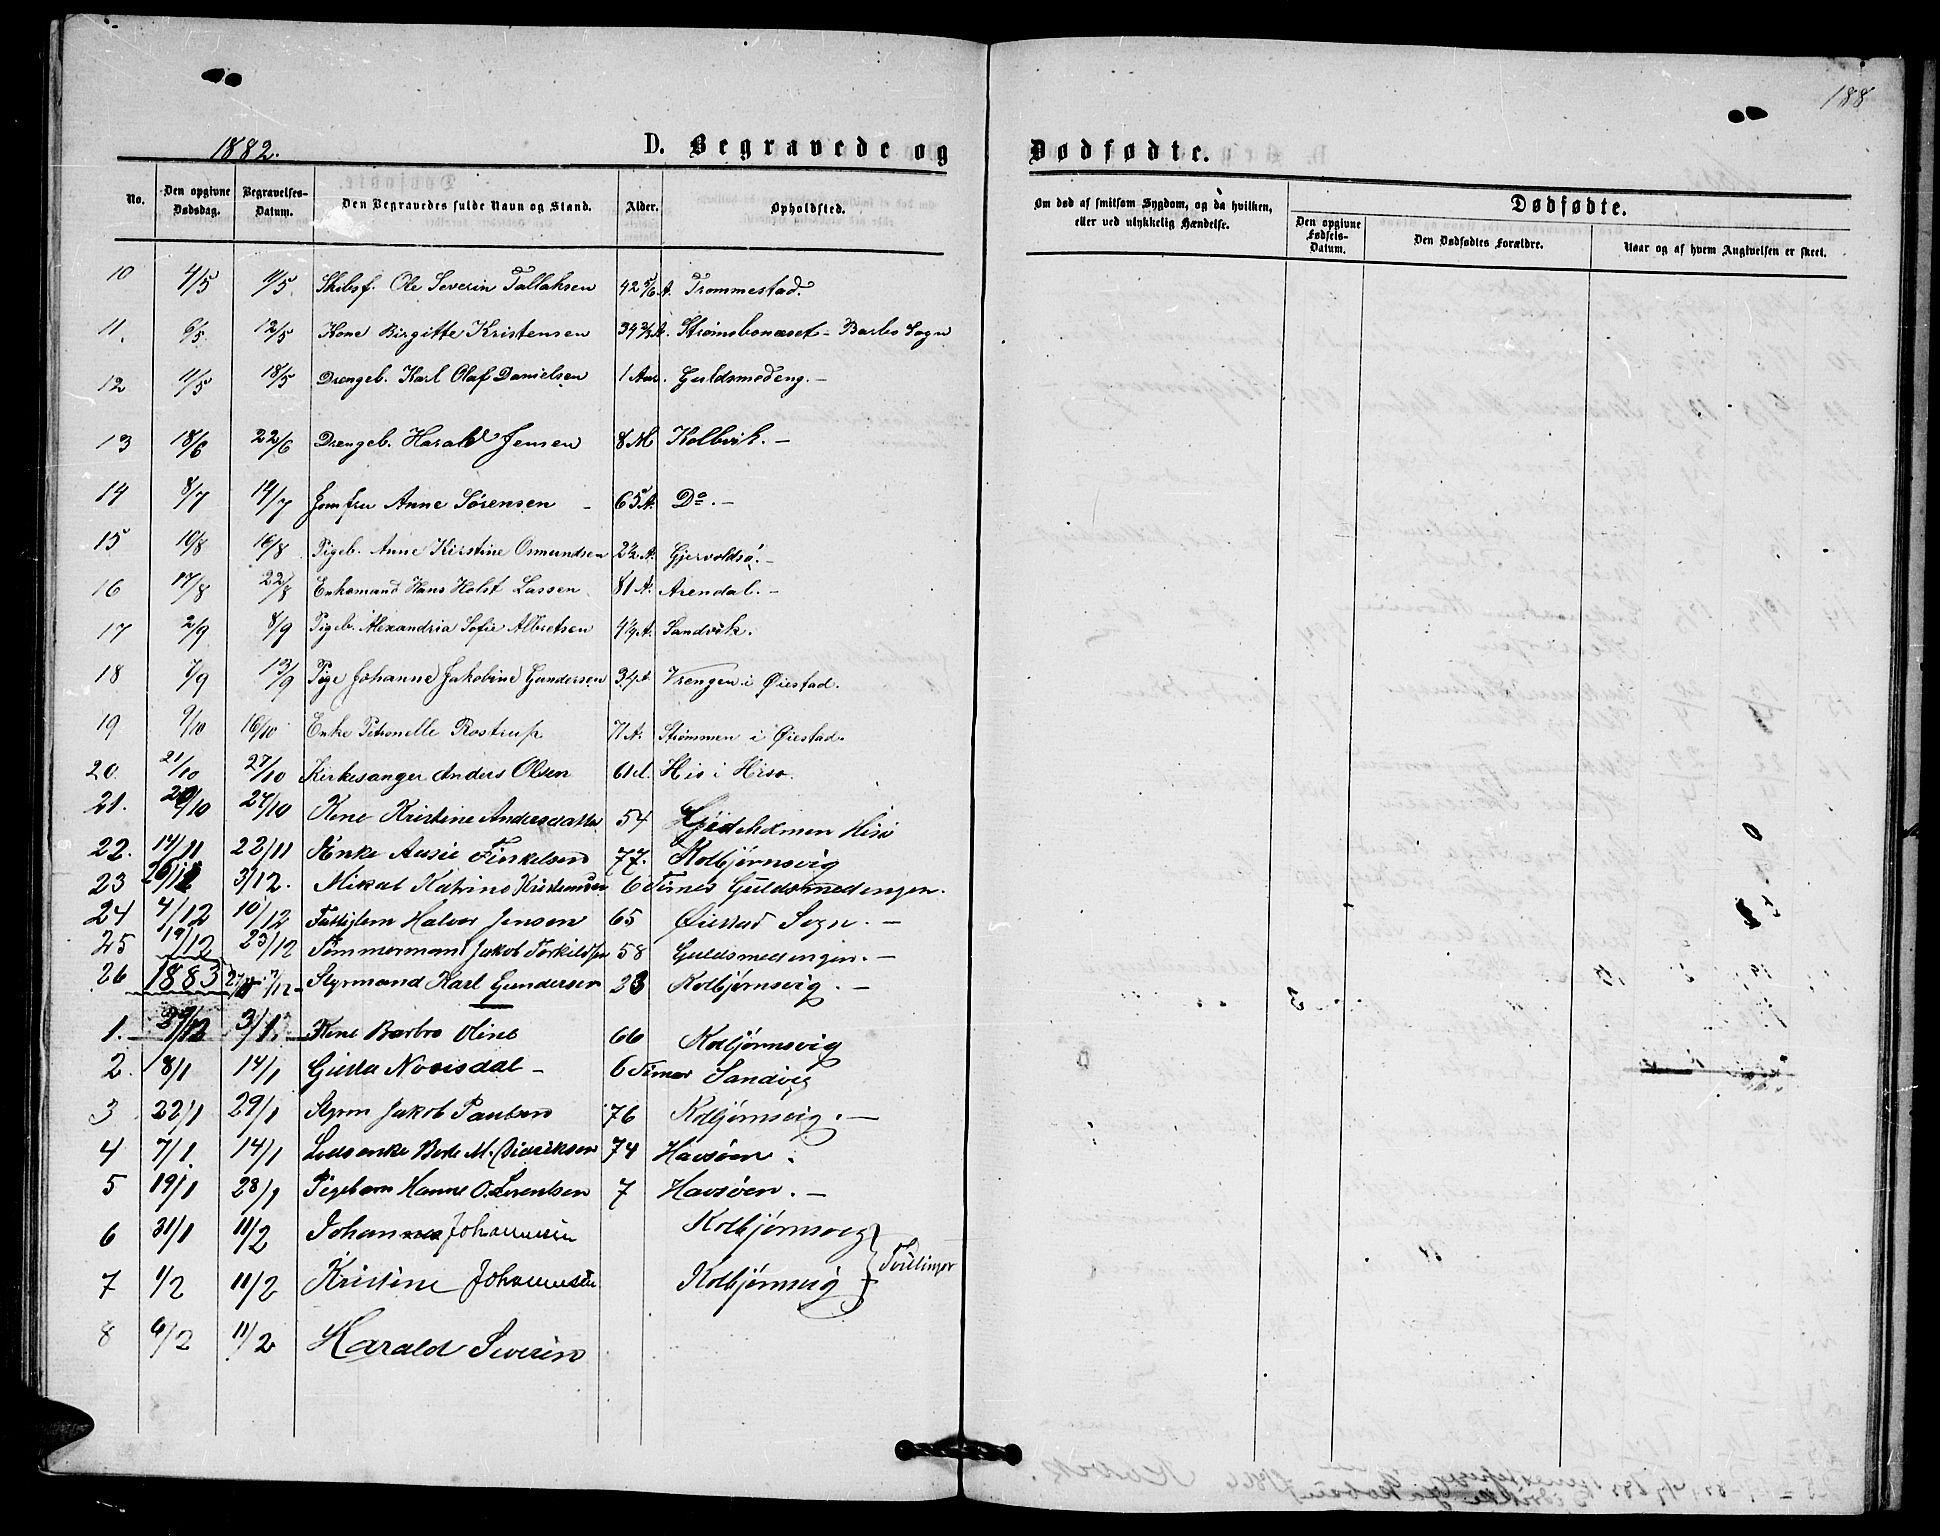 188
1882.
D. Begravede og Dødfødte.
No. Den opgivne Dødsdag. Begravelses-Datum. Den Begravedes fulde Navn og Stand. Alder. Opholdsted.
Om død af smitsom Sygdom, og da hvilken, eller ved ulykkelig Hændelse. Dødfødte. Den opgivne Fødsels-Datum. Den Dødfødtes Forældre. Naar og af hvem Angivelsen er skeet.
10 4/5 11/5 Skibsf. Ole Severin Tallaksen 42 5/6 A. Trommestad.
11. 6/5 12/5 Kone Birgitte Kristensen 34 A. Strømsbonæset - Barbo Sogn
12 11/5 18/5 Drengeb. Karl Olaf Danielsen 1 Aar. Guldsmedeng. -
13 18/6 22/6 Drengeb. Harald Jensen 8 M Kolbvik. -
14 8/7 14/7 Jomfru Anne Sørensen - 65 A. Do. -
15 10/8 16/8 Pigeb. Anne Kirstine Osmundsen 2 1/2 A. Gjervoldsø. -
16 17/8 22/8 Enkemand Hans Holst Lassen 81 A. Arendal. -
17 2/9 8/9 Pigeb. Alexandria Sofie Albretsen 4 A. Sandvik.
18 7/9 13/9 Pige Johanne Jakobine Gundersen 34 A. Vrengen i Øiestad.
19 9/10 16/10 Enke Petronelle Rostrup 71 A. Strømmen i Øiestad.
20. 21/10 27/10 Kirkesanger Anders Olsen 61 A. His i Hisø.
21. 27/10 Kone Kristine Andersdatter 54 Hisø
22. 14/11 22/11 Enke Aasie Finkelsen 77. Kolbjørnsvig
23 3/12. Mikal Katrine Kristiansen 6 Timer Guldsmedengen.
24 4/12 10/12 Fattiglem Halvor Jensen 65 Øiestad Sogn. -
25 19/12 23/12 Tømmermand Jakob Torkildsen 58 Guldsmedengen. -
26 Styrmand Karl Gundersen 23 Kolbjørnsvig. -
1883
1. 29/12 3/1 Kone Barbro Oline 66 Kolbjørnsvig
2. 18/1 14/1 Gusta Norisdal - 6 Timer Sandvig
3 22/1 29/1 Styrm Jakob Paulsen 76 Kolbjørnsvig. -
4 7/1. 14/1 Lodsenke Berte M. Didriksen 74 Havsøen.
5 19/1 28/1 Pigebarn Hanne O. Lorentsen 7 Havsøen. -
6 31/1 11/2 Johannes Johannesen Kolbjørnsvig
7 1/2 11/2 Kristine Johannesen Kolbjørnsvig } Tvillinger
8 6/2 11/2 Harald Severin